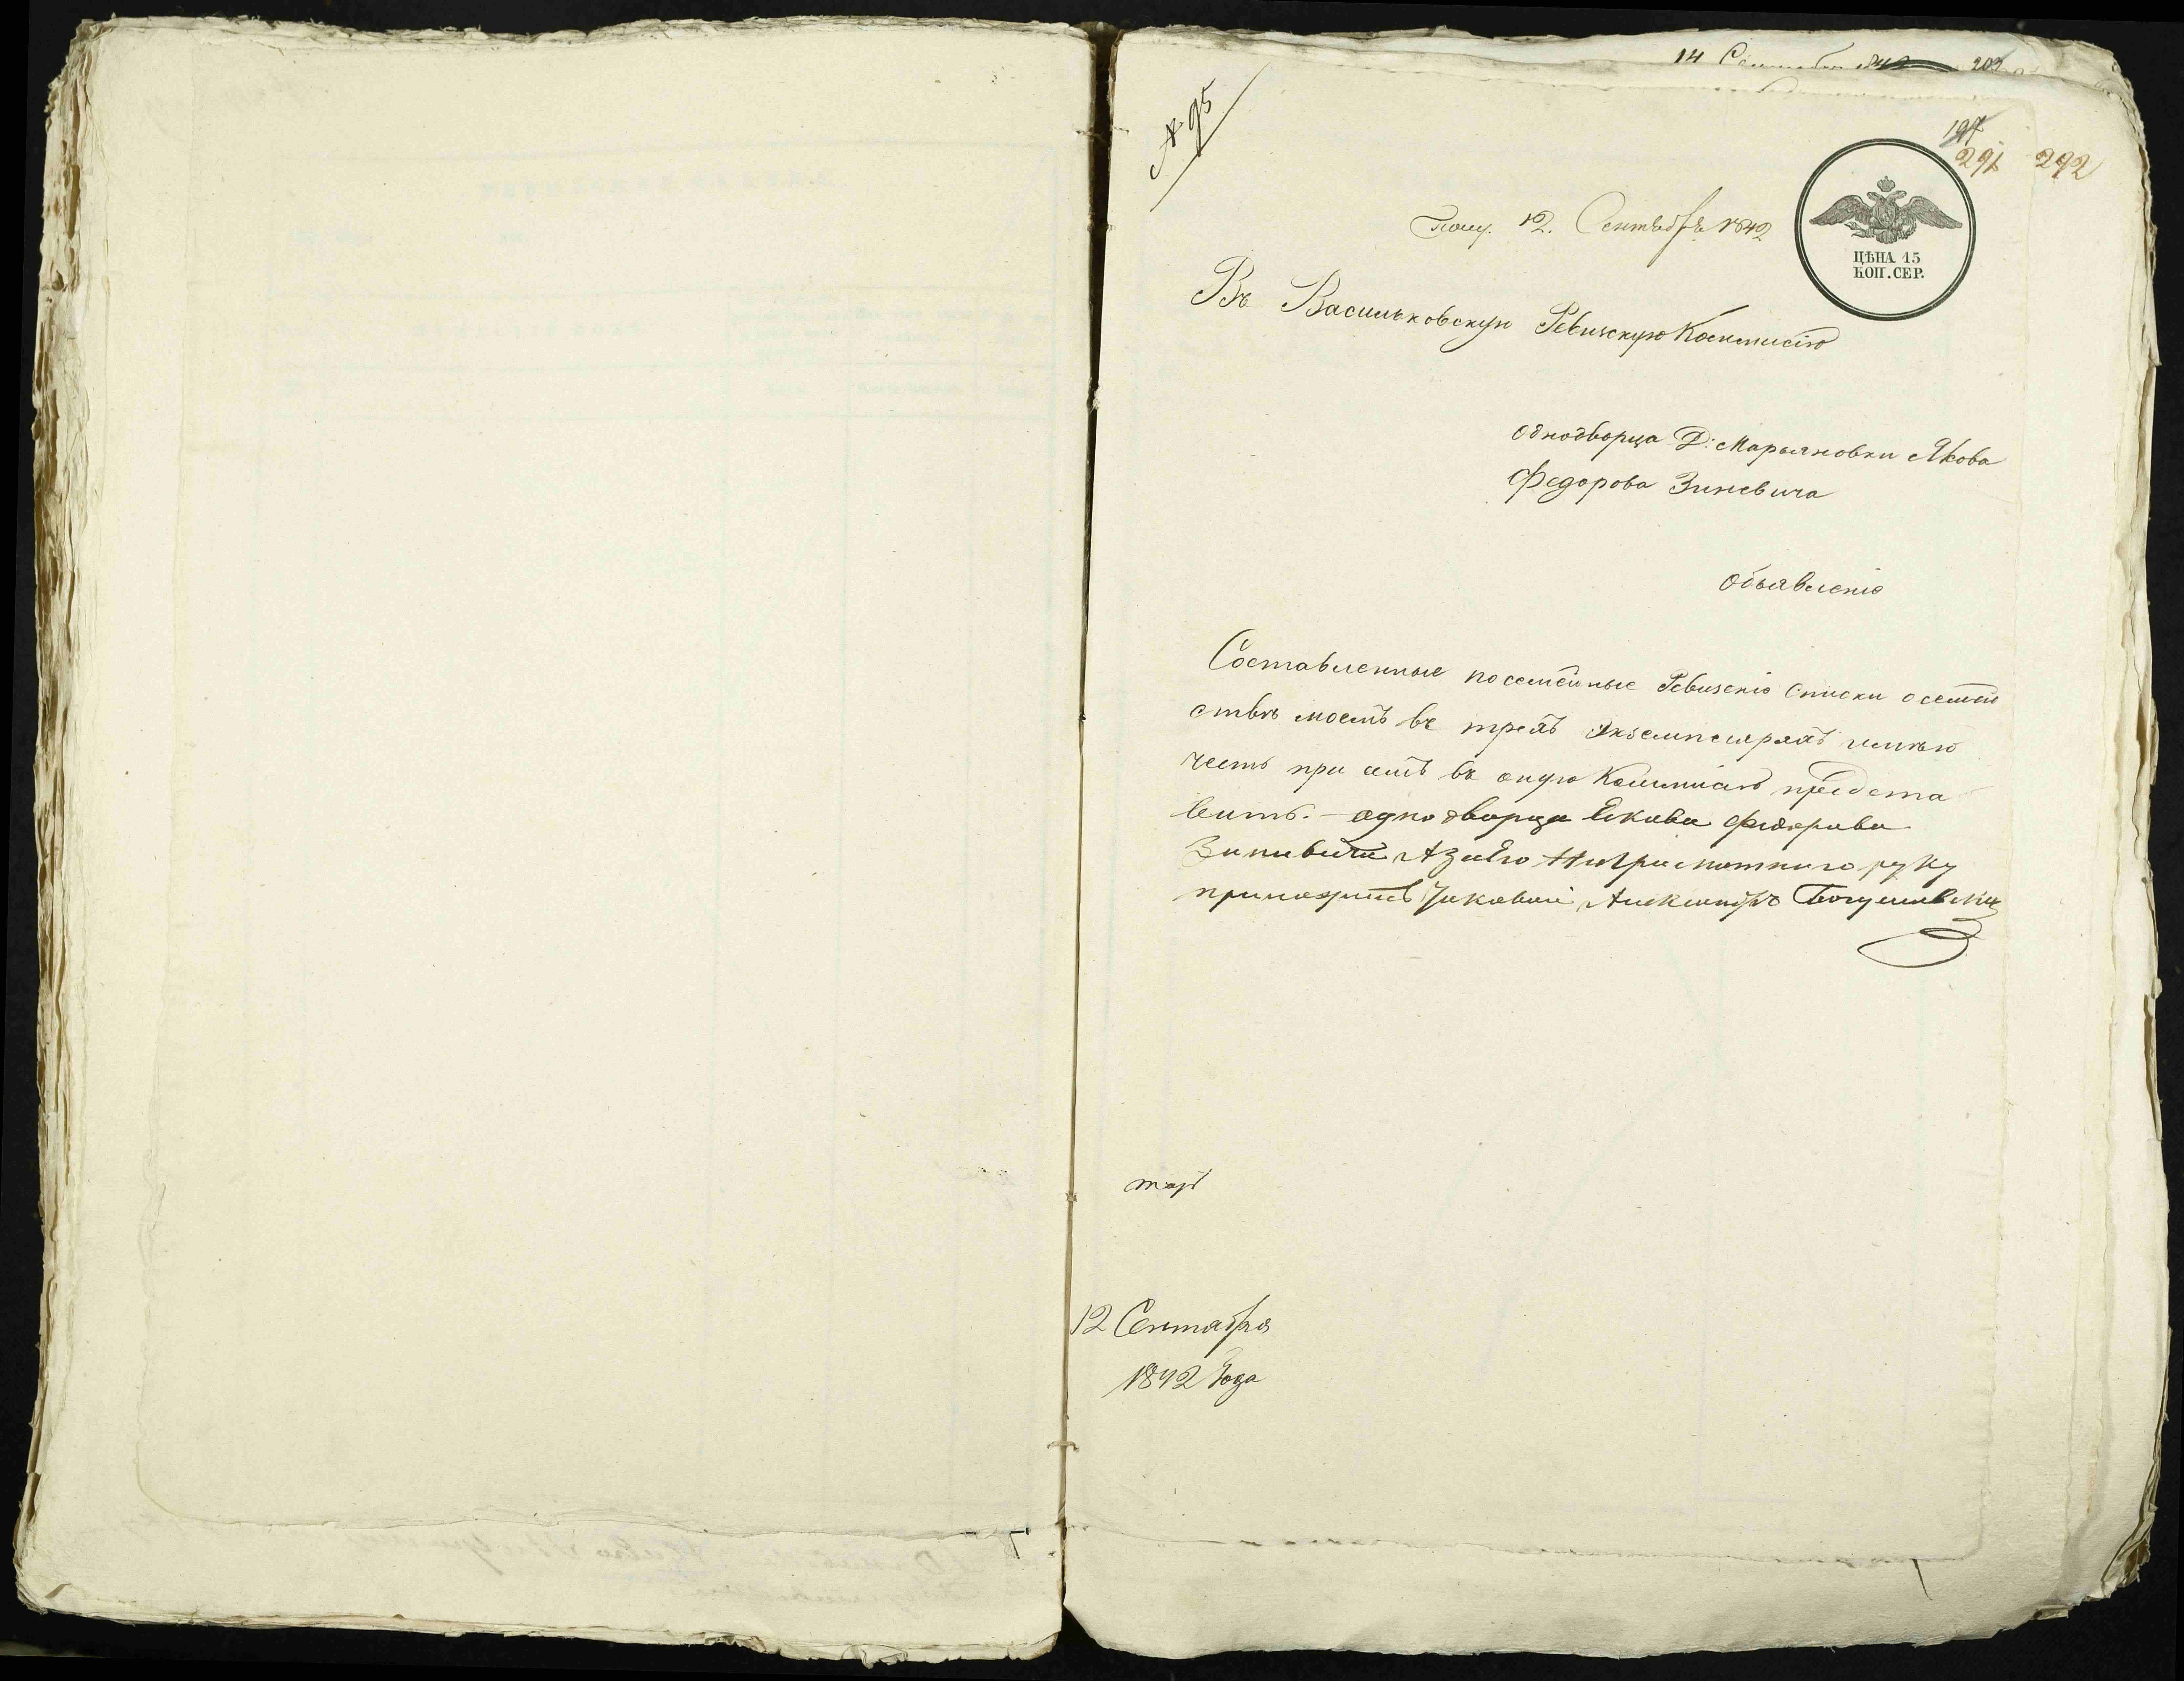 14 Сентября 1842 203
№ 95
197
291 292
Полу. 12. Сентября 1842
ЦѢНА 15
КОП. СЕР.
Въ Васильковскую Ревизскую Коммисію
Однодворца Д: Марьяновки Якова
Федорова Зиневича
Объявленіе
Составленные посемейные Ревизскіе Списки о семей
ствѣ моемъ въ трехъ экземплярахъ имѣю
честь при семъ въ оную Коммисію предста
вить. – однодворца Екова Федорова
Зиневича А за Его Неграмотного руку
приложилъ Александръ Богушевскій
12 Сентября
1842 Года